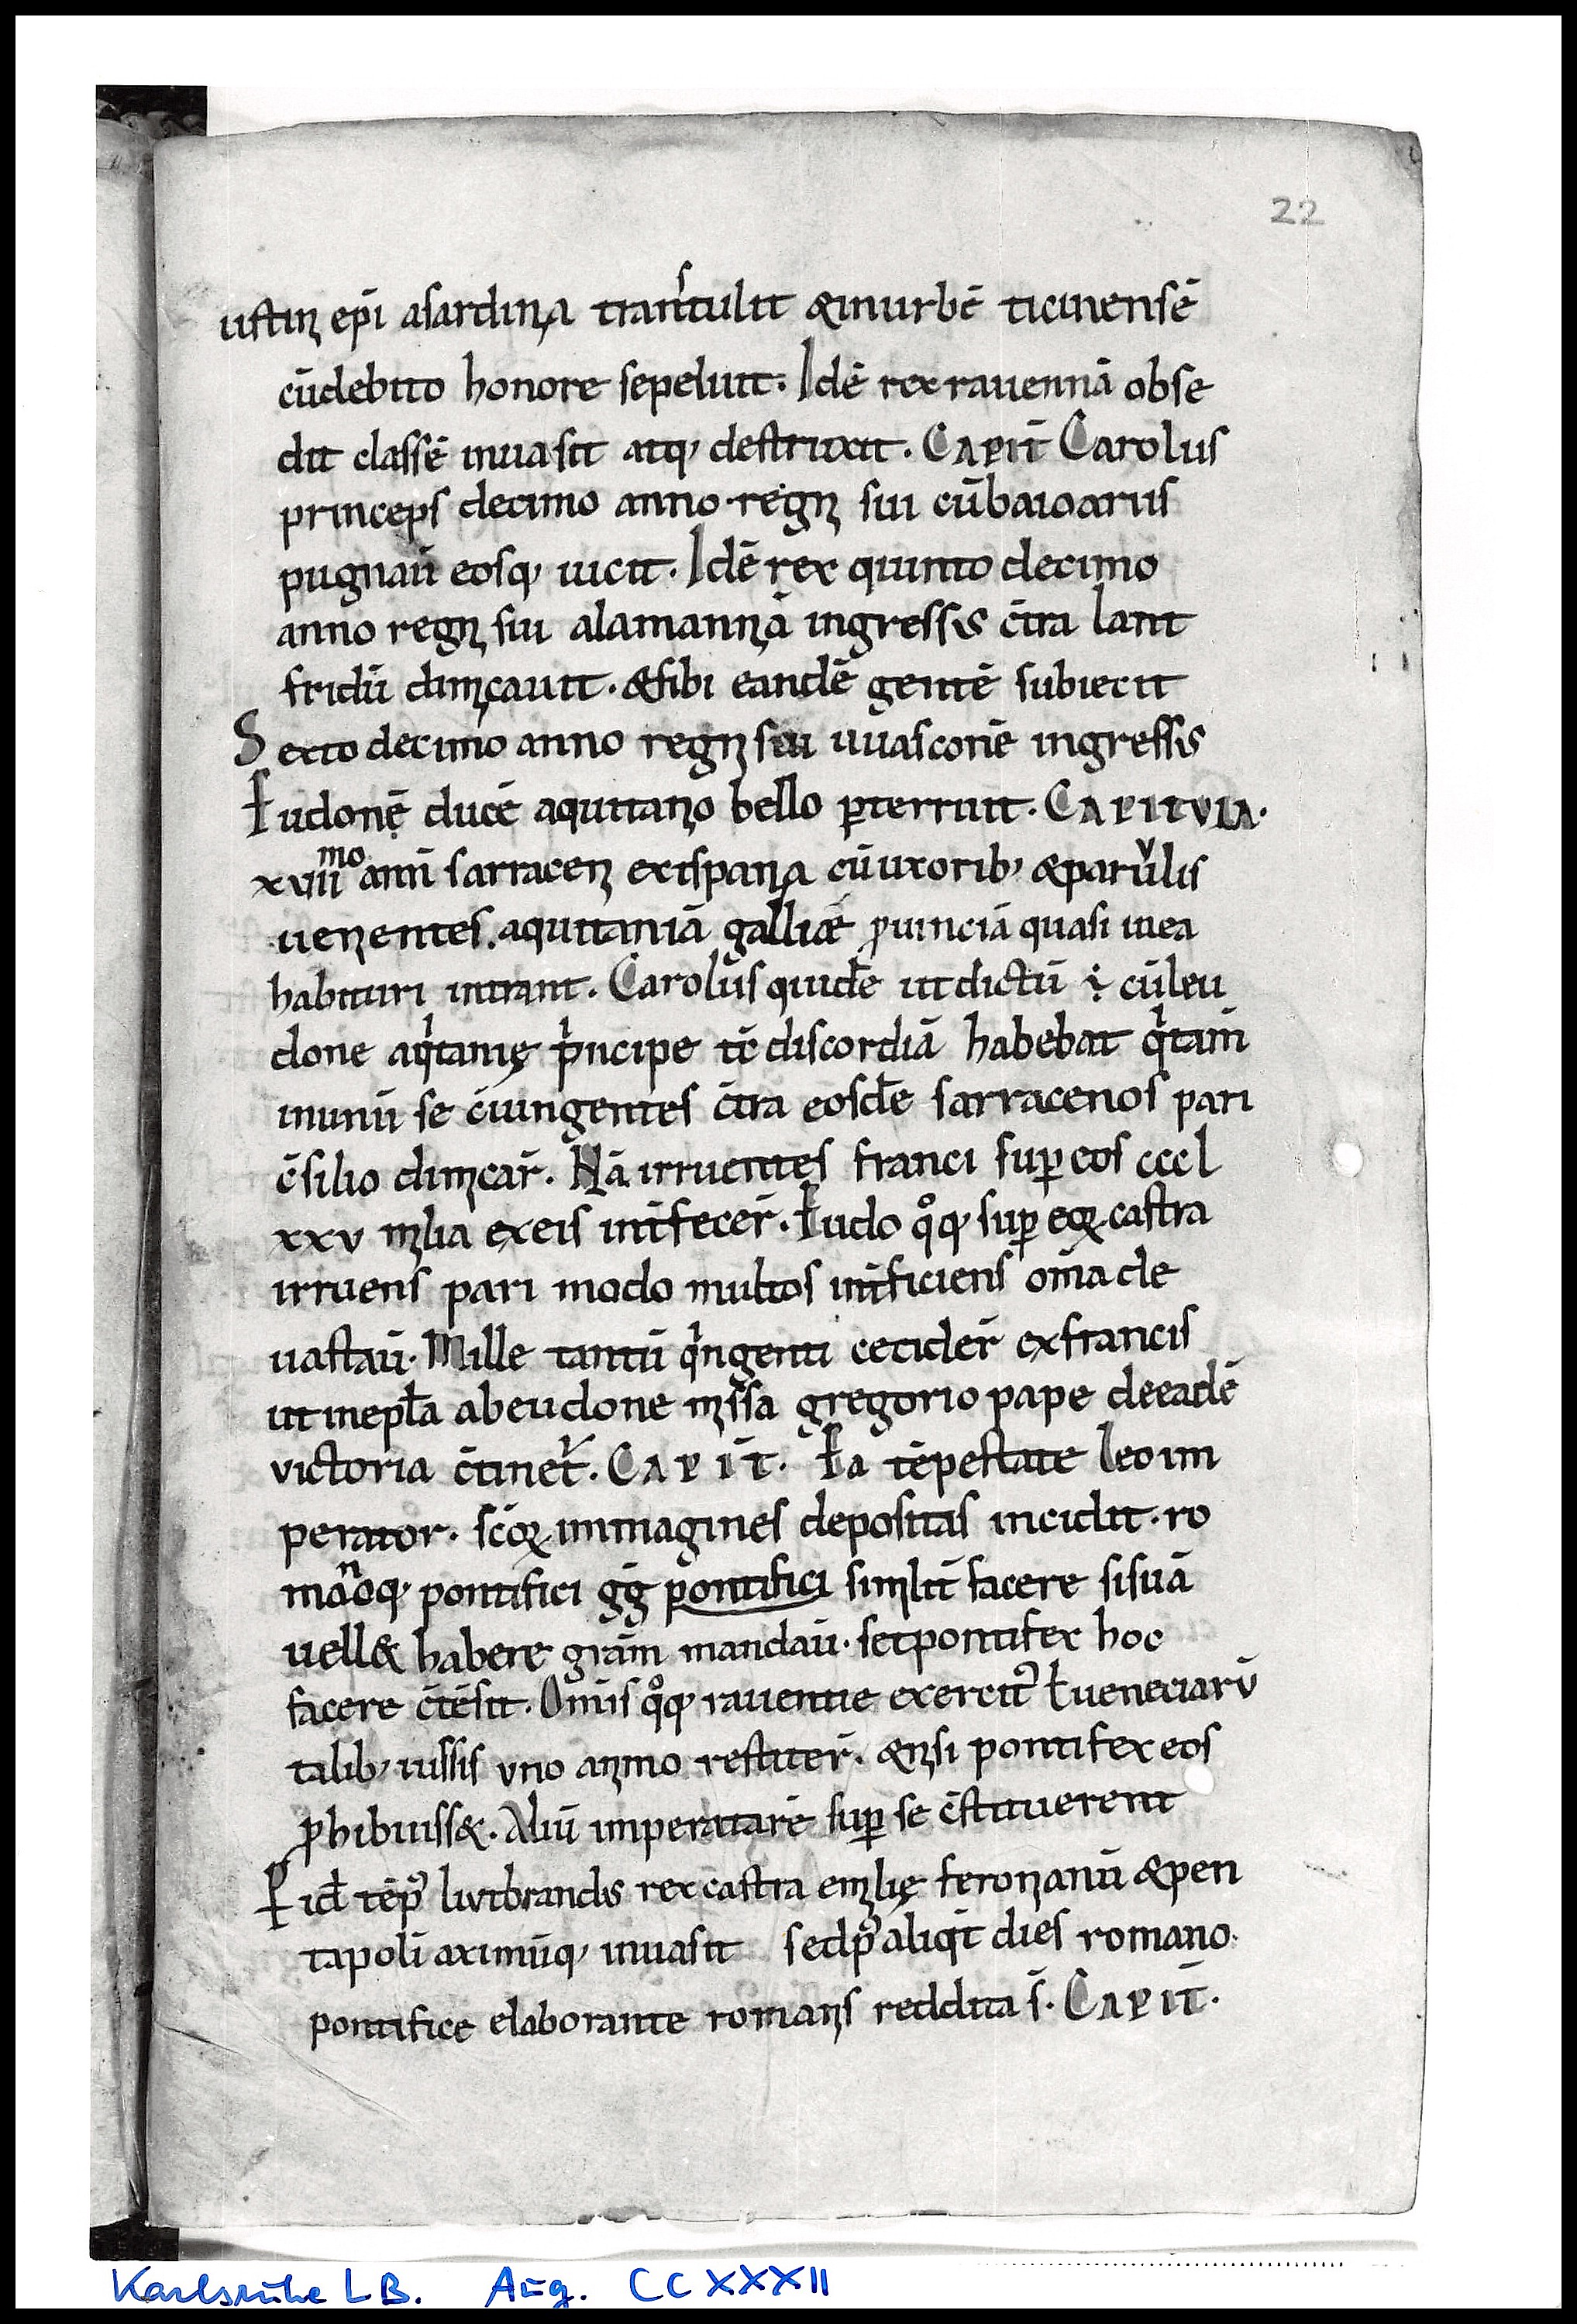 22
ustini ep̄i asardinia transtulit &inurbē ticinensē
cūdebito honore sepeliuit. Idē rex rauennā obse
dit classē inuasit atq; destruxit. CAPIT̄ Carolus
princeps decimo anno regni sui cūbaioariis
pugnaū eosq; uicit. Idē rex quinto decimo
anno regni sui alamanniā ingressus c̄tra lant
fridū dimicauit. &sibi eandē gentē subiecit
Sexto decimo anno regni sui uuasconē ingressus
Eudonē ducē aquitanio bello ꝑterruit. CAPITVLA.
xviii^mo anni sarraceni exispania cūuxorib; &paruulis
uenientes. aquitaniā galliæ ꝓuinciā quasi inea
habituri intrant. Carolus quidē ut dictū ē cūleu
done aqͥtanię pͥncipe tc̄ discordiā habebat qͥtam̄
inunū se c̄iungentes c̄tra eosdē sarracenos pari
c̄silio dimicar̄. Nā irruentes franci suꝑ eos cccl
xxv milia exeis int̄fecer̄. Eudo qͦq; suꝑ eoꝝ castra
irruens pari modo multos int̄ficiens om̄ia de
uastaū. Mille tantū qͥngenti cecider̄ exfrancis
ut inepl̄a abeudone missa gregorio pape deeadē
victoria c̄tinet᷑. CAPIT̄. Ea tēpestate leo im
perator. sc̄oꝝ immagines depositas incidit. ro
manoq; pontifici gḡ pontifici similit̄ facere sisuā
uell& habere grām mandaū. set pontifex hoc
facere c̄tēsit. Om̄is qͦq; rauenne exercitꝰ ł ueneciarū
talib; iussis uno animo restiter̄. &nisi pontifex eos
ꝓhibuiss&. Aliū imperatarē suꝑ se c̄stituerent
Eid̄ tēpꝰ liutbrandus rex castra emilię feronianū &pen
tapoli aximūq; inuasit sedpꝰ aliqͥt dies romano.
pontifice elaborante romanis reddita s̄. CAPIT̄.
Karlsruhe LB. Aug. CCXXXII